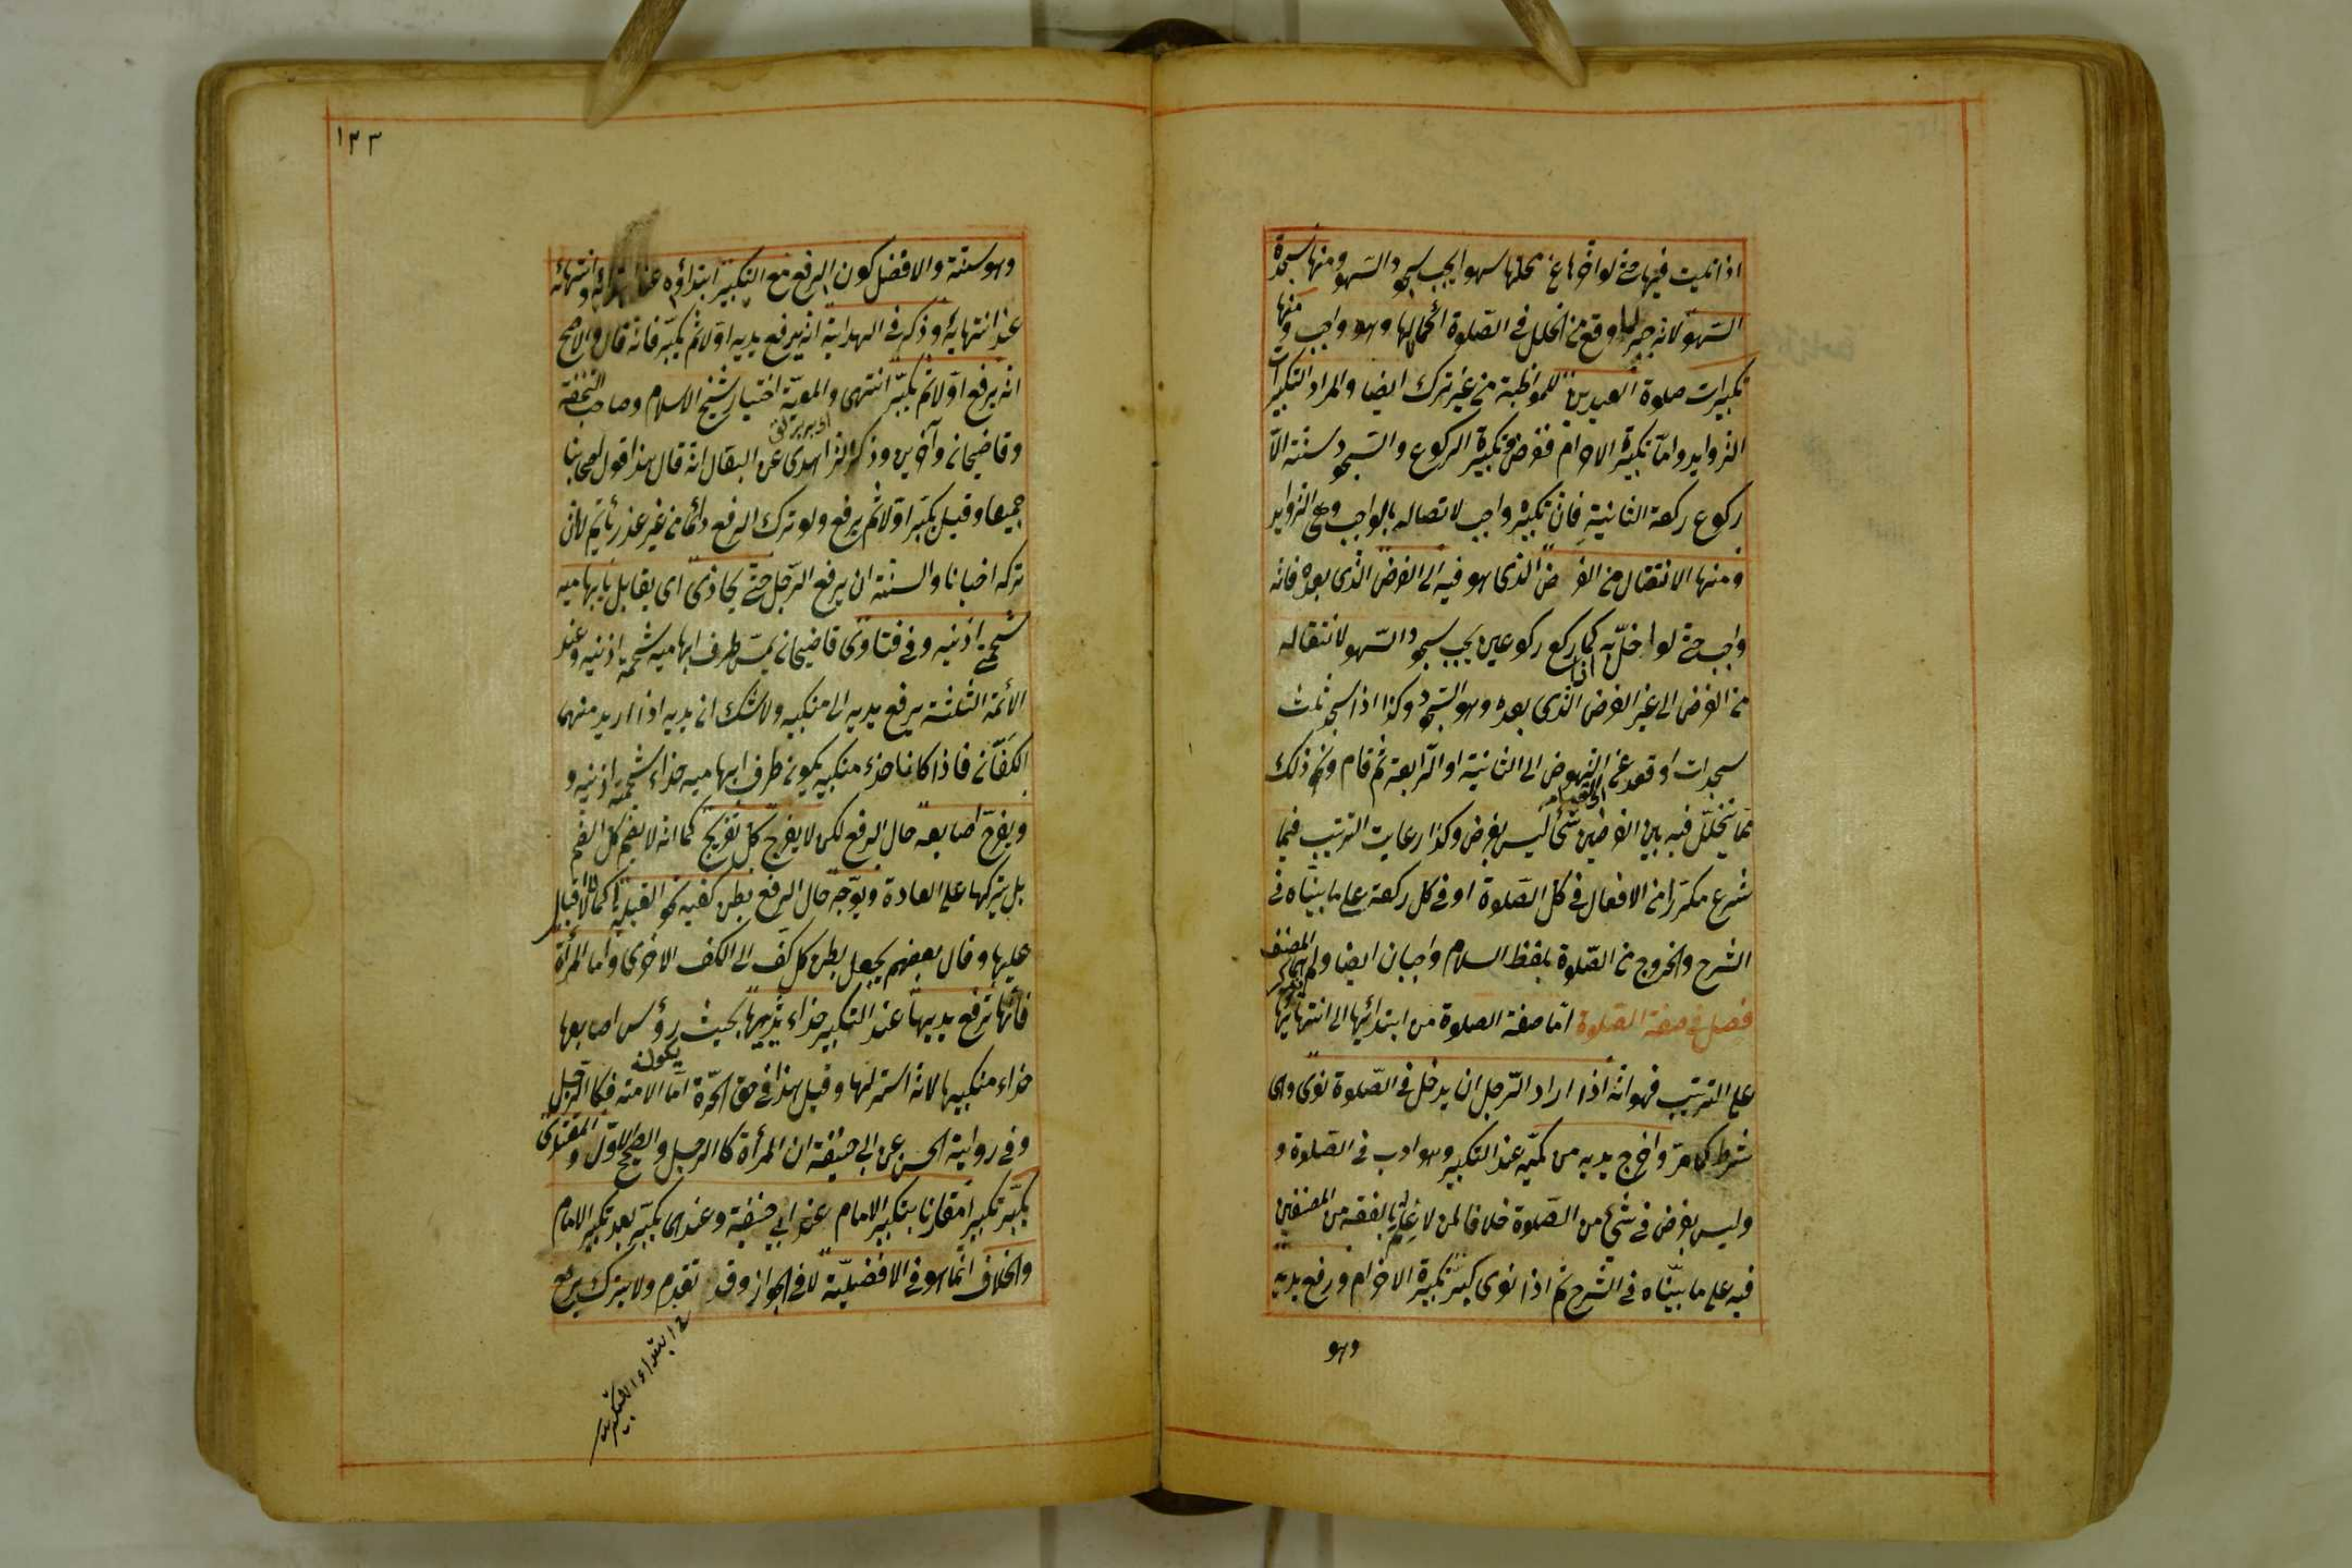 اذا تليت فيها حتى لو اخرها عن محلها سهوا يجب سجود السهو ومنها سجدة
السهو لانه جبر لما وقع من الخلل في الصلوة اكمالها وهو واجب ومنها
تكبيرات صلوة العيدين للمواظبة من غير ترك ايضا والمراد التكبيرات
الزوايد واما تكبيرة الاحرام ففرض وتكبيرة الركوع والسجود سنة الا
ركوع ركعة الثانية فان تكبيره واجب لاتصاله بالواجب وهي الزوايد
ومنها الانتقال من الفرض الذى هو فيه الى الفرض الذى بعده فانه
واجب حتى لو اخل به كما اذا ركع ركوعين يجب سجود السهو لانتقاله
من الفرض الى غير الفرض الذى بعده وهو السجود وكذا اذا سجد ثلث
سجدات او قعد عن النهوض الى الثانية او الرابعة ثم قام ونحو ذلك
مما يتخلل فيه بين الفرضين شئ ليس بفرض وكذا رعايت الترتيب فيما
شرع مكررا من الافعال في كل الصلوة او في كل ركعة على ما بيناه في
الشرح والخروج من الصلوة بلفظ السلام واجبان ايضا ولم المصنف
فصل في صفة الصلوة اما صفة الصلوة من ابتدائها الى انتهائها
على الترتيب فهو انه اذا اراد الرجل ان يدخل في الصلوة نوى وهى
شرط كما مر واخرج يديه من كميه عند التكبير وهو ادب في الصلوة و
وليس بفرض في شئ من الصلوة خلافا لمن لا بالفقه من المصنفين
فيه على ما بيناه في الشرح ثم اذا نوى كبر تكبيرة الاحرام ورفع يديه
وهو
١٢٣
وهو سنة والافضل كون الرفع مع التكبير ابتداؤه عند ابتدائه وانتهائه
عند انتهائه وذكر في الهداية انه يرفع يديه اولا ثم يكبر فانه قال والاصح
انه يرفع اولا ثم يكبر انتهى والمعية اختيار شيخ الاسلام وصاحب التحفة
وقاضيخان وآخرين وذكر الزاهدى عن البقال انه قال هذا قول اصحابنا
جميعا وقيل يكبر اولا ثم يرفع ولو ترك الرفع دائما من غير عذر يأثم لا ان
تركه احيانا والسنة ان يرفع الرجل حتى يحاذى اى يقابل بابهاميه
شحمتى اذنيه وفي فتاوى قاضيخان يمس طرف ابهاميه شحمة اذنيه وعند
الائمة الثلثة يرفع يديه الى منكبيه ولا شك ان يديه اذا اريد منهما
الكفان فاذا كانا حذاء منكبيه يكون طرف ابهاميه حذاء شحمة اذنيه و
ويفرج اصابعه حال الرفع لكن لا يفرج كل تفريج كما انه لا يضم كل الضم
بل يتركها على العادة ويوجه حال الرفع بطن كفيه نحو القبلة اكمالا للاقبال
عليها وقال بعضهم يجعل بطن كل كف الى الكف الاخرى واما المرأة
فانها ترفع يديها عند التكبير حذاء ثدييها بحيث يكون رؤس اصابعها
حذاء منكبيها لانه استر لها وقيل هذا في حق الحرة اما الامة فكالرجل
وفي رواية الحسن عن ابى حنيفة ان المرأة كالرجل والصحيح الاول والمقتدى
يكبر تكبيرا مقارنا بتكبير الامام عند ابى حنيفة وعندهما يكبر بعد تكبير الامام
والخلاف انما هو في الافضلية لا في الجواز وقد تقدم ولا يترك رفع